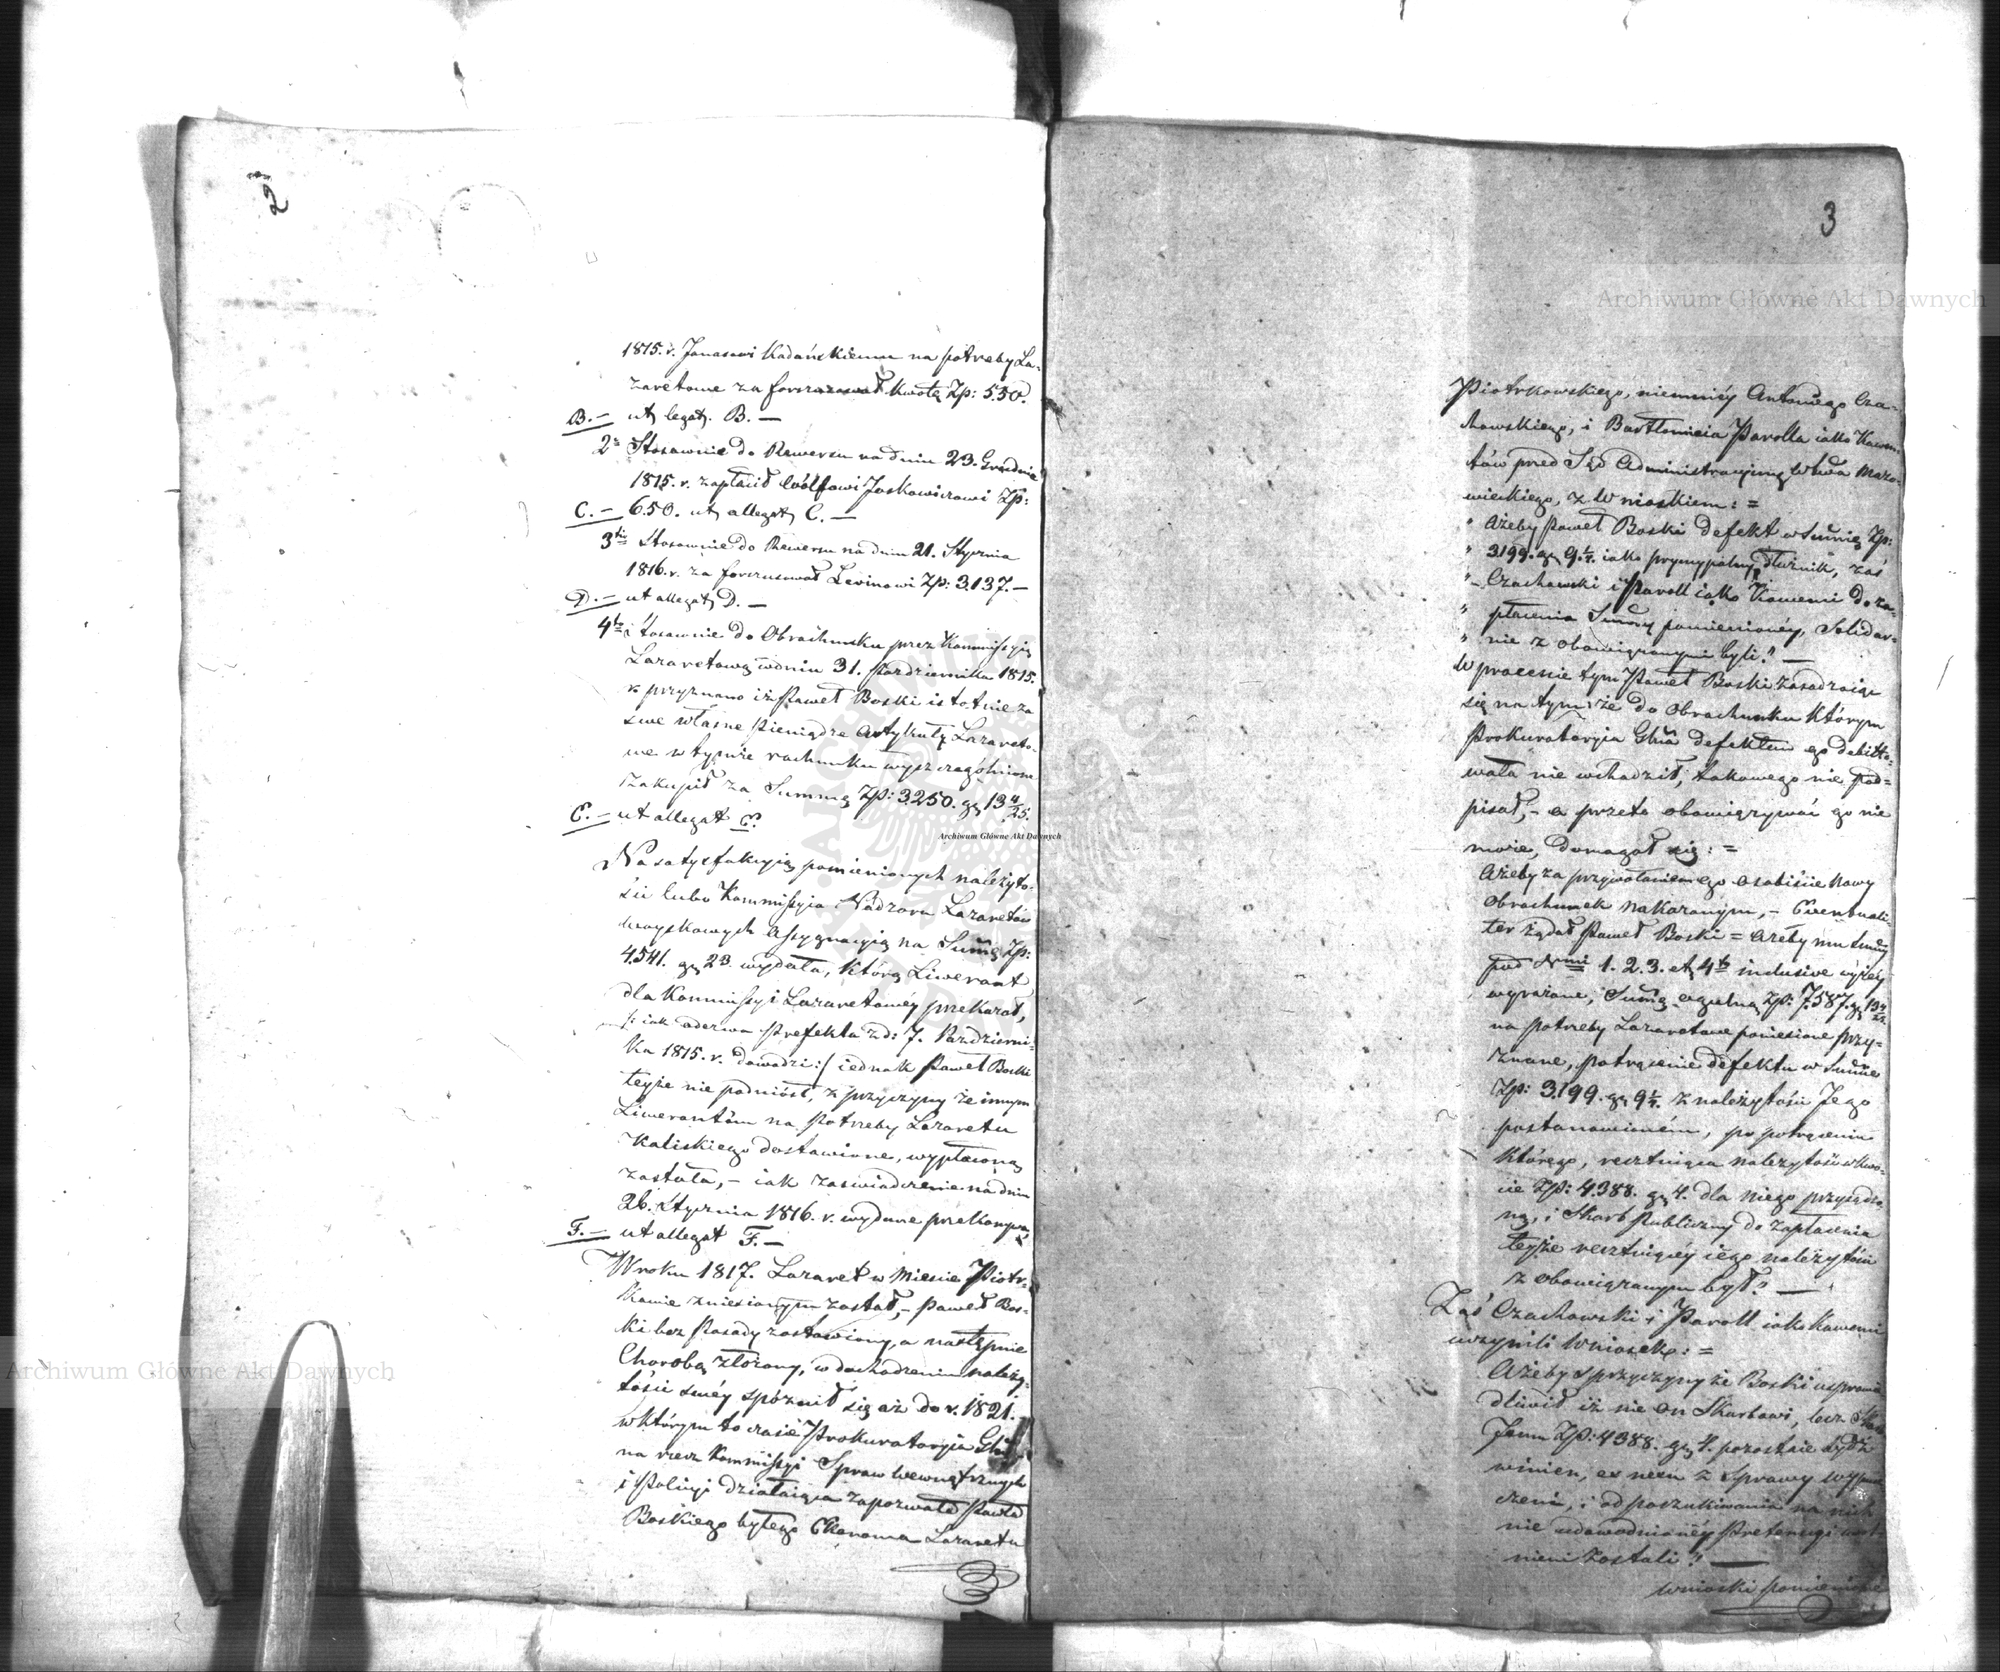 2
1815. r. Janasowi Kadańskiemu na potrzeby La-
zaretowe za forszusował kwotę Zp: 550.
B. — ut legat. B. —
2° Stosownie do Rewersu na dniu 23. Grudnia
1815. r. zapłacił Wólfowi Joskowiczowi Zp:
C. — 650. ut allegat C. —
3tio Stosownie do Rewersu na dniu 21. Stycznia
1816. r. za forszusował Lewinowi Zp: 3137. —
D. — ut allegat D. —
4to Stosownie do Obrachunku przez Kommissyią
Lazaretową w dniu 31. Października 1815.
r. przyznano iż Paweł Boski istotnie za
swe własne Pieniądze Artykuły Lazareto-
we w tymże rachunku wyszczegolnione
zakupił za Summę Zp: 3250. gr 13 4/25.
E. — ut allegat E.
Na satysfakcyią pomienionych należyto-
ści lubo Kommissyia Nadzoru Lazaretów
woyskowych Assygnacyią na Summę Zp:
4541. gr 23. wydała, którą Liwerant
dla Kommissyi Lazaretowéy przekazał,
/: iak odezwa Prefekta zd: 7. Październi-
ka 1815. r. dowodzi :/ iednak Paweł Boski
teyże nie podniósł, z przyczyny że innym
Liwerantóm na Potrzeby Lazaretu
Kaliskiego dostawione, wypłaconą
została, — iak zaświadczenie na dniu
26. Stycznia 1816. r. wydane przekonywa,
F. — ut allegat F. —
W roku 1817. Lazaret w Mieście Piotr-
kowie zniesionym został, — Paweł Bos-
ki bez Posady zostawiony, a następnie
Chorobą złożony, w dochodzeniu należy-
tości swéy spóźnił się aż do r. 1821.
w którym to czasie Prokuratorya
na rzecz Kommissyi Spraw Wewnętrznych
i Policyi działaiąca zapozwała Pawła
Boskiego byłego Ekonoma Lazaretu
3
Piotrkowskiego, niemniéy Antoniego Cza-
chowskiego, i Bartłomieia Parolla iako Kawen-
tów przed Sąd Administracyiny Wtwa Mazo-
wieckiego, z Wnioskiem: =
" Ażeby Paweł Boski defekt w Summie Zp:
" 3199. gr 9 1/4. iako pryncypalny dłużnik, zaś
" Czachowski i Paroll iako Kawenci do za-
" płacenia Summy pomienionéy, Solidar-
" nie z obowiązanymi byli." —
W processie tym Paweł Boski zasadzaiąc
się na tym że do Obrachunku którym
Prokuratorya Glna defektem go debitto-
wała nie wchodził, takowego nie pod-
pisał, — a przeto obowięzywać go nie
może, domagał się: =
Ażeby za przywołaniem go osobiście Nowy
Obrachunek nakazanym, — Ewentuali-
ter żądał Paweł Boski = ażeby mu Summy
pod Nrmi 1. 2. 3. et 4to inclusive wyżéy
wyrażone, Summę ogulną Zp: 7587. gr 13 4/25
na Potrzeby Lazaretowe poniesione przy-
znane, potrącenie defektu w Summie
Zp: 3199. gr 9 1/4. z należytości Jego
postanowioném, po potrąceniu
którego, resztuiąca należytość w kwo-
cie Zp: 4388. gr 4. dla niego przysądzo-
ną, i Skarb Publiczny do zapłacenia
teyże resztuiącéy iego należytości
z obowiązanym był." —
Zaś Czachowski i Paroll iako Kawenci
uczynili Wniosek: =
Ażeby z przyczyny że Boski usprawie-
dliwił iż nie On Skarbowi, lecz Skarb
Jemu Zp: 4388. gr 4. pozostaie bydź
winien, ex neen z Sprawy
i od poszukiwania na nich
nie udowodnionéy Pretensyi
zostali." —
Wnioski pomienione
Archiwum Główne Akt Dawnych
Archiwum Główne Akt Dawnych
Archiwum Główne Akt Dawnych